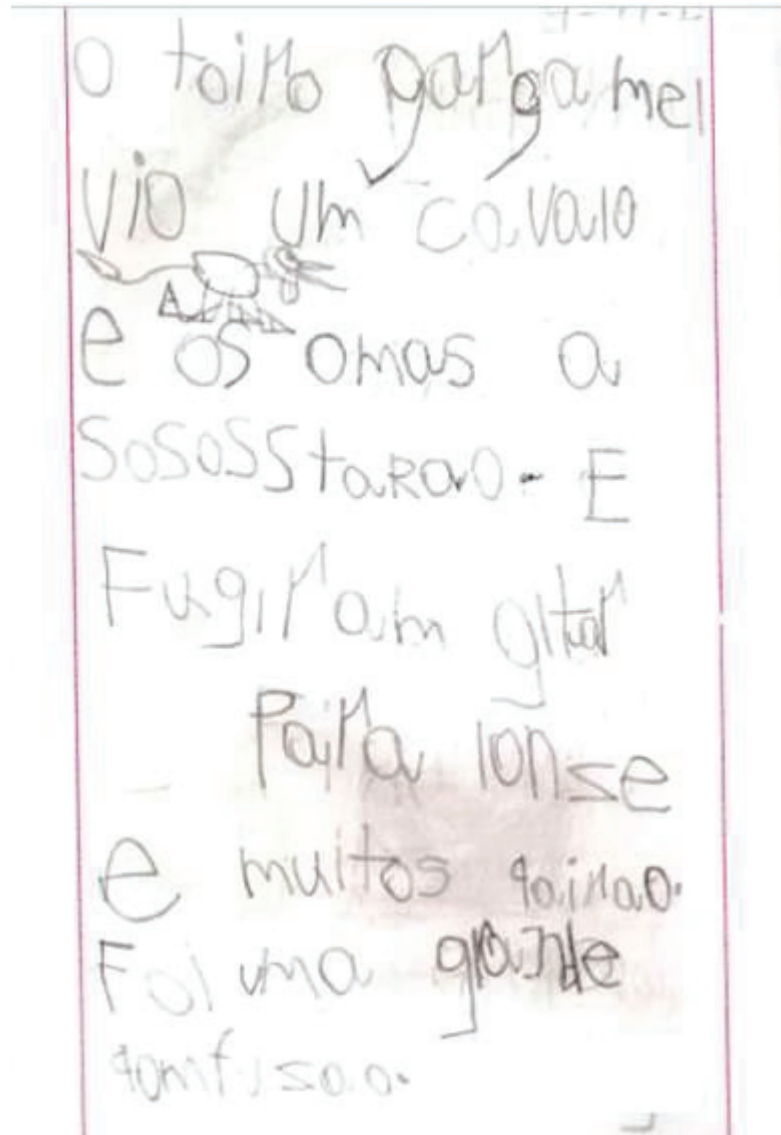 O toiro gargamel
vio um cavalo
e os omas a
SosoSStaRao. E
Fugiram gitar
Para lonse
e muitos qairao.
Foi uma grande
qomfisao.